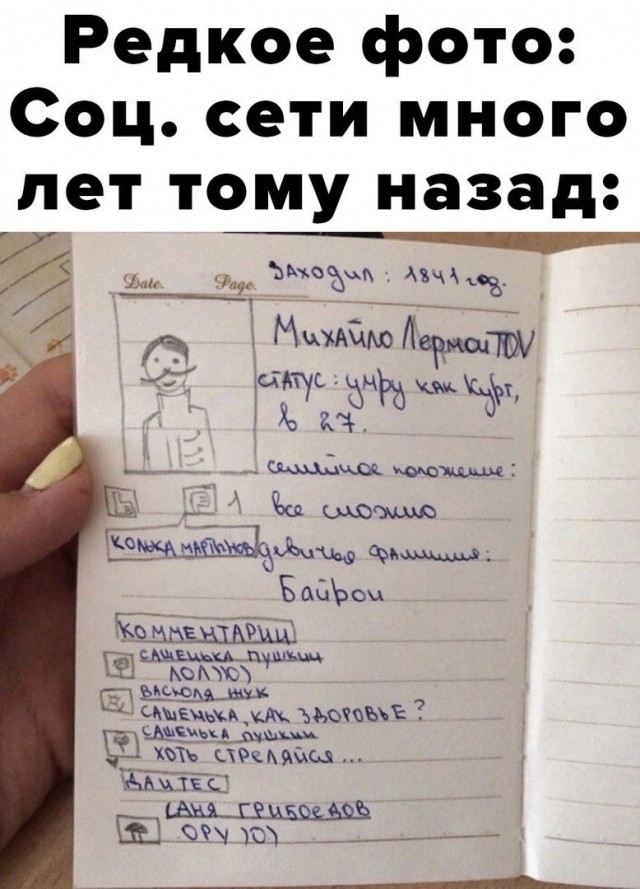 Редкое фото:
Соц. сети много
лет тому назад:
Date. Page. Заходил : 1841 год.
Михайло ЛермоиTOV
статус : умру как Курт,
в 27.
семейное положение :
1 все сложно
Колька Мартынов девичья фамилия :
Байрон
Комментарии
Сашенька Пушкин
лол)0)
Васюля Жук
Сашенька, как здоровье ?
Сашенька Пушкин
хоть стреляйся ...
Дантес
Саня Грибоедов
ору )0)